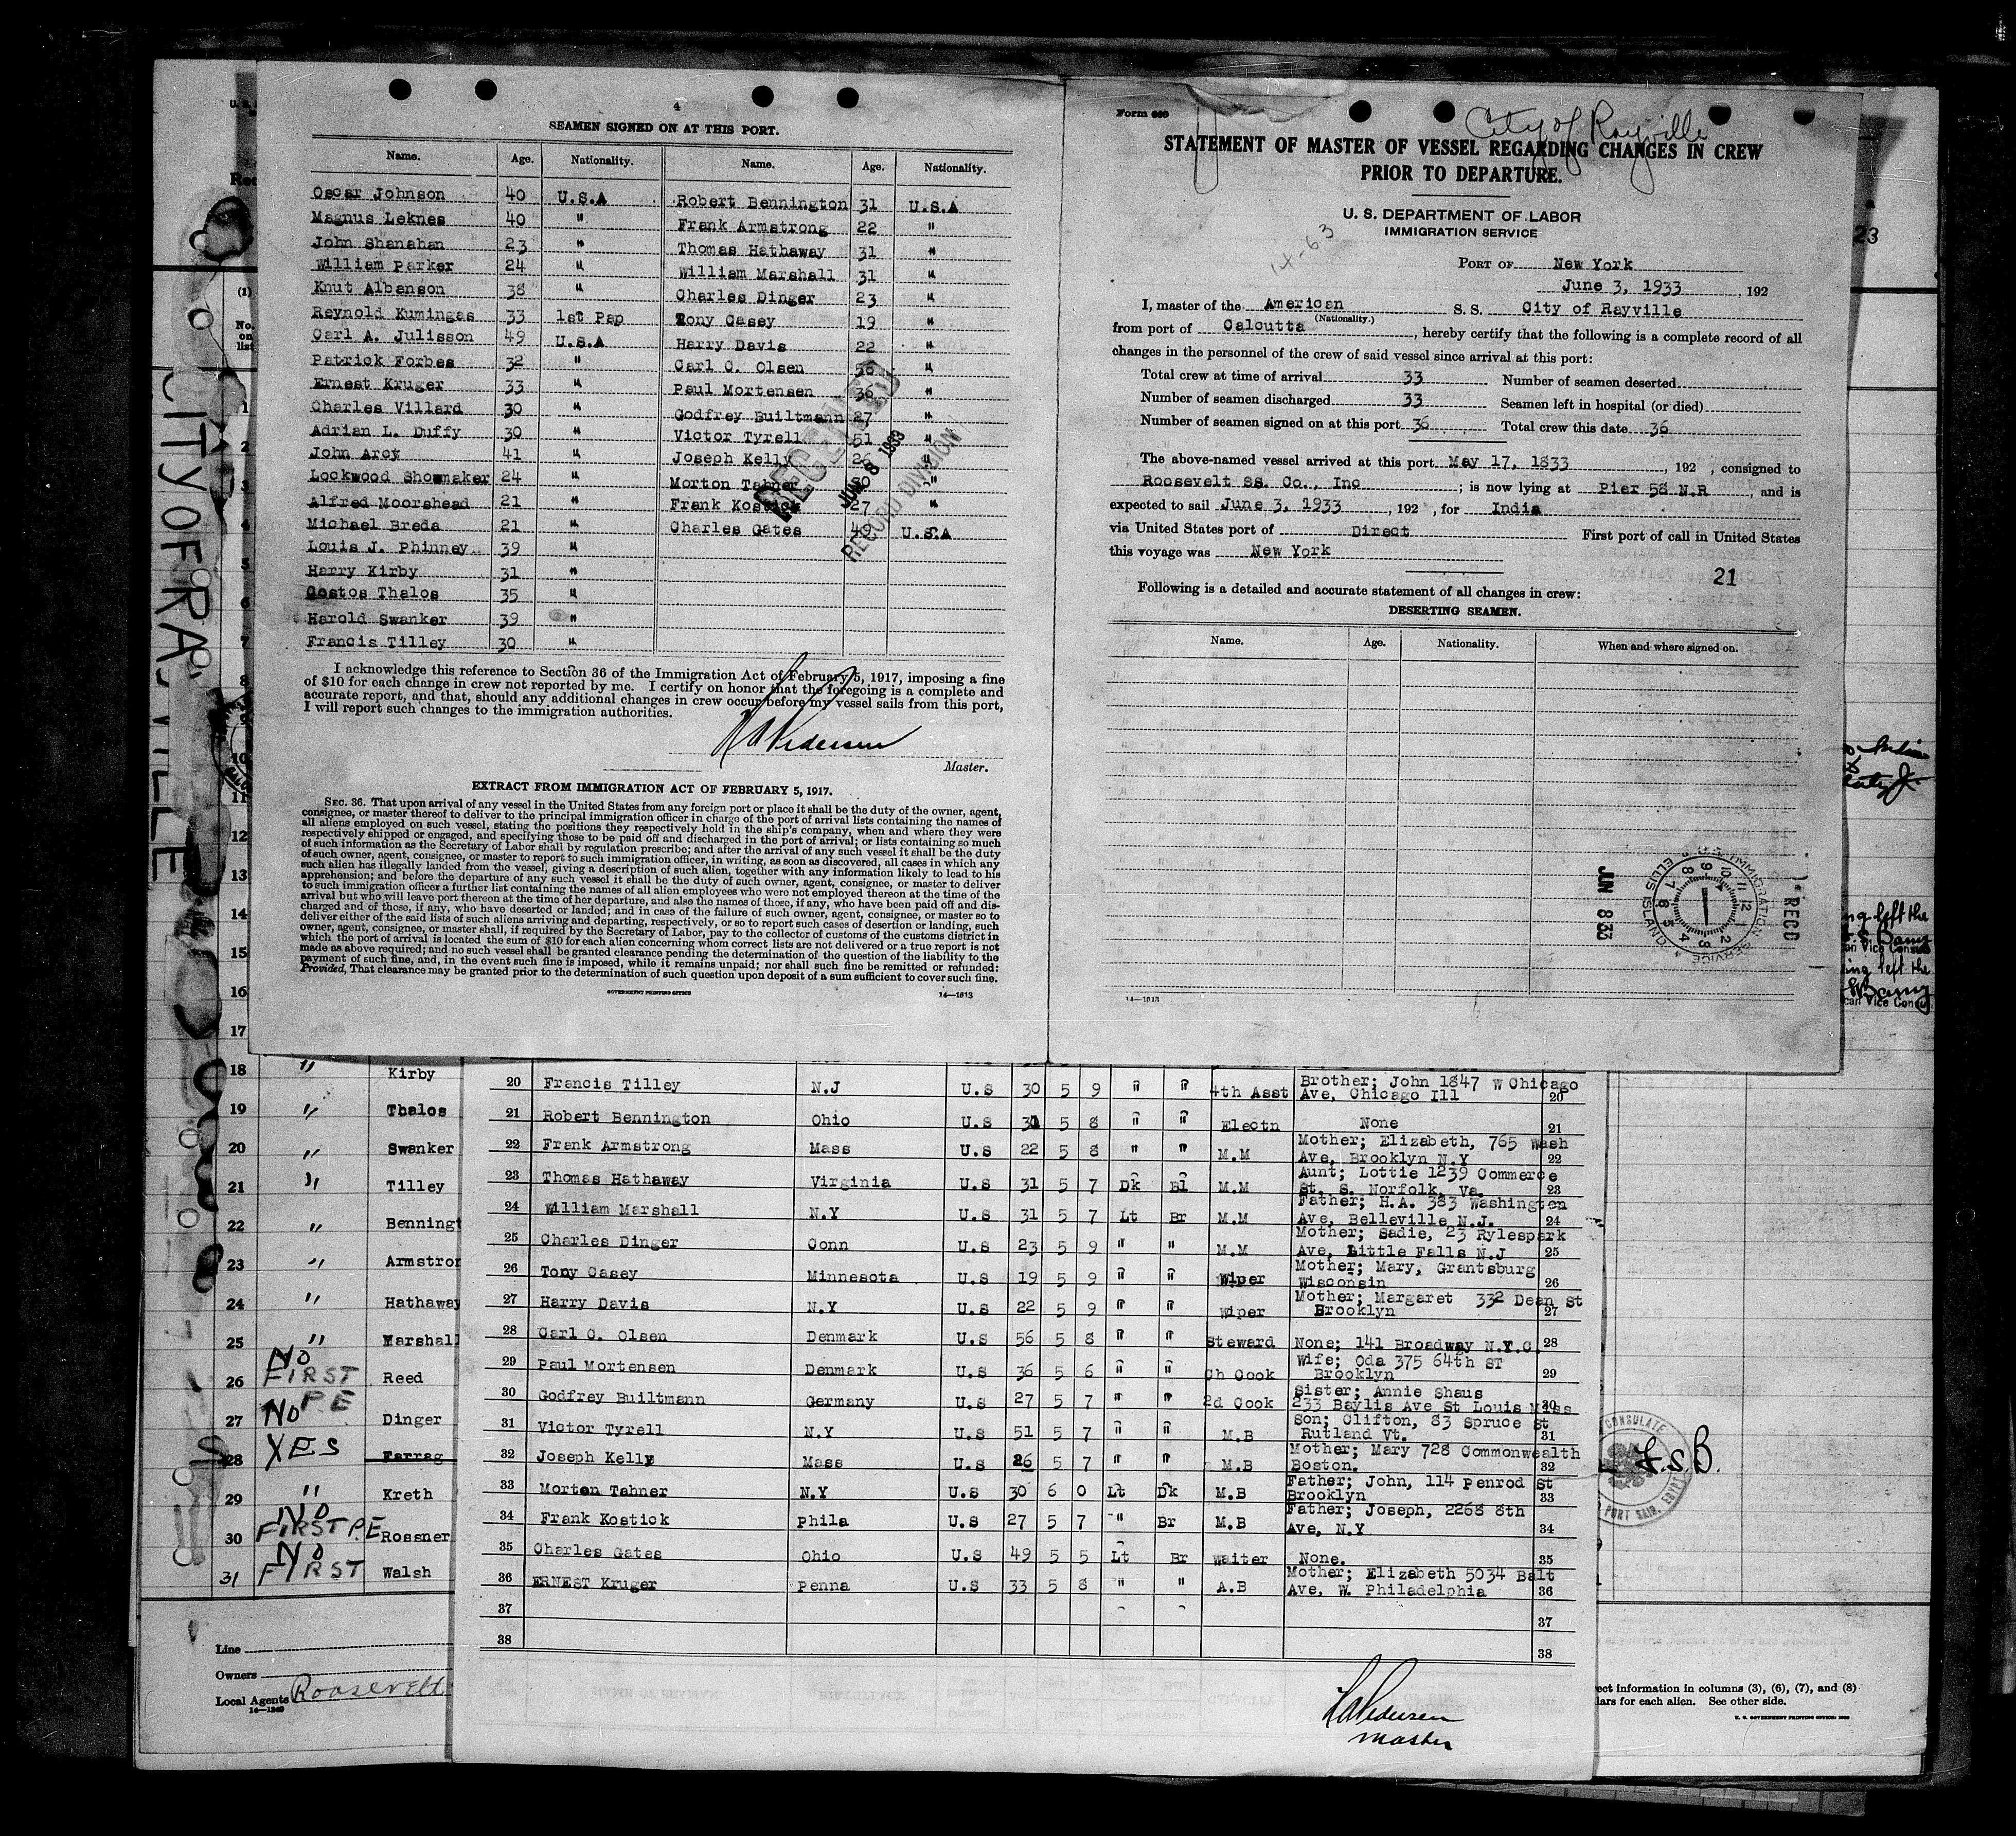 4
SEAMEN SIGNED ON AT THIS PORT.
Name. Age. Nationality. Name. Age. Nationality.
Oscar Johnson 40 U.S.A Robert Bennington 31 U.S.A
Magnus Leknes 40 " Frank Armstrong 22 "
John Shanahan 23 " Thomas Hathaway 31 "
William Parker 24 " William Marshall 31 "
Knut Albanson 38 " Charles Dinger 23 "
Reynold Kumingas 33 1st Pap Tony Casey 19 "
Carl A. Julisson 49 U.S.A Harry Davis 22 "
Patrick Forbes 32 " Carl C. Olsen 56 "
Ernest Kruger 33 " Paul Mortensen 36 "
Charles Villard 30 " Godfrey Builtmann 27 "
Adrian L. Duffy 30 " Victor Tyrell 51 "
John Arcy 41 " Joseph Kelly 26 "
Lockwood Showmaker 24 " Morton Tahner 30 "
Alfred Moorshead 21 " Frank Kostick 27 "
Michael Breda 21 " Charles Gates 49 U.S.A
Louis J. Phinney 39 "
Harry Kirby 31 "
Costos Thalos 35 "
Harold Swanker 39 "
Francis Tilley 30 "
RECEIVED
JUN 8 1933
RECORD DIVISION
I acknowledge this reference to Section 36 of the Immigration Act of February 5, 1917, imposing a fine
of $10 for each change in crew not reported by me. I certify on honor that the foregoing is a complete and
accurate report, and that, should any additional changes in crew occur before my vessel sails from this port,
I will report such changes to the immigration authorities.
Pedersen
Master.
EXTRACT FROM IMMIGRATION ACT OF FEBRUARY 5, 1917.
SEC. 36. That upon arrival of any vessel in the United States from any foreign port or place it shall be the duty of the owner, agent,
consignee, or master thereof to deliver to the principal immigration officer in charge of the port of arrival lists containing the names of
all aliens employed on such vessel, stating the positions they respectively hold in the ship's company, when and where they were
respectively shipped or engaged, and specifying those to be paid off and discharged in the port of arrival; or lists containing so much
of such information as the Secretary of Labor shall by regulation prescribe; and after the arrival of any such vessel it shall be the duty
of such owner, agent, consignee, or master to report to such immigration officer, in writing, as soon as discovered, all cases in which any
such alien has illegally landed from the vessel, giving a description of such alien, together with any information likely to lead to his
apprehension; and before the departure of any such vessel it shall be the duty of such owner, agent, consignee, or master to deliver
to such immigration officer a further list containing the names of all alien employees who were not employed thereon at the time of the
arrival but who will leave port thereon at the time of her departure, and also the names of those, if any, who have been paid off and dis-
charged and of those, if any, who have deserted or landed; and in case of the failure of such owner, agent, consignee, or master so to
deliver either of the said lists of such aliens arriving and departing, respectively, or so to report such cases of desertion or landing, such
owner, agent, consignee, or master shall, if required by the Secretary of Labor, pay to the collector of customs of the customs district in
which the port of arrival is located the sum of $10 for each alien concerning whom correct lists are not delivered or a true report is not
made as above required; and no such vessel shall be granted clearance pending the determination of the question of the liability to the
payment of such fine, and, in the event such fine is imposed, while it remains unpaid; nor shall such fine be remitted or refunded:
Provided, That clearance may be granted prior to the determination of such question upon deposit of a sum sufficient to cover such fine.
GOVERNMENT PRINTING OFFICE 14—1613
Form 689
City of Rayville
STATEMENT OF MASTER OF VESSEL REGARDING CHANGES IN CREW
PRIOR TO DEPARTURE.
U. S. DEPARTMENT OF LABOR
IMMIGRATION SERVICE
14-63
PORT OF New York
June 3, 1933, 192
I, master of the American S. S. City of Rayville
(Nationality.)
from port of Calcutta, hereby certify that the following is a complete record of all
changes in the personnel of the crew of said vessel since arrival at this port:
Total crew at time of arrival 33 Number of seamen deserted
Number of seamen discharged 33 Seamen left in hospital (or died)
Number of seamen signed on at this port 36 Total crew this date 36
The above-named vessel arrived at this port May 17, 1833, 192 , consigned to
Roosevelt Ss. Co., Inc ; is now lying at Pier 58 N.R, and is
expected to sail June 3, 1933, 192 , for India
via United States port of Direct First port of call in United States
this voyage was New York
21
Following is a detailed and accurate statement of all changes in crew:
DESERTING SEAMEN.
Name. Age. Nationality. When and where signed on.
JUN 8 33
U.S. IMMIGRATION SERVICE ELLIS ISLAND
REC'D
14—1613
23
CITY OF RAYVILLE
(1)
No. on list
1
2
3
4
5
6
7
8
9
10
11
12
13
14
15
16
17
18 " Kirby
19 " Thalos
20 " Swanker
21 " Tilley
22 " Benningt
23 " Armstron
24 " Hathaway
25 " Marshall
26 NO FIRST Reed
27 NO PE Dinger
28 YES Farrag
29 " Kreth
30 NO FIRST P.E Rossner
31 NO FIRST Walsh
Line
Owners
Local Agents Roosevelt
14—1240
20 Francis Tilley N.J U.S 30 5 9 " " 4th Asst Brother; John 1847 W Chicago Ave, Chicago Ill 20
21 Robert Bennington Ohio U.S 31 5 8 " " Electn None 21
22 Frank Armstrong Mass U.S 22 5 8 " " M.M Mother; Elizabeth, 765 Wash Ave, Brooklyn N.Y 22
23 Thomas Hathaway Virginia U.S 31 5 7 Dk Bl M.M Aunt; Lottie 1239 Commerce St. S. Norfolk, Va. 23
24 William Marshall N.Y U.S 31 5 7 Lt Br M.M Father; H.A. 383 Washington Ave, Belleville N.J. 24
25 Charles Dinger Conn U.S 23 5 9 " " M.M Mother; Sadie, 23 Rylespark Ave, Little Falls N.J 25
26 Tony Casey Minnesota U.S 19 5 9 " " Wiper Mother; Mary, Grantsburg Wisconsin 26
27 Harry Davis N.Y U.S 22 5 9 " " Wiper Mother; Margaret 332 Dean St Brooklyn 27
28 Carl C. Olsen Denmark U.S 56 5 8 " " Steward None; 141 Broadway N.Y.C. 28
29 Paul Mortensen Denmark U.S 36 5 6 " " Ch Cook Wife; Oda 375 64th ST Brooklyn 29
30 Godfrey Builtmann Germany U.S 27 5 7 " " 2d Cook Sister; Annie Shaus 233 Baylis Ave St Louis Miss 30
31 Victor Tyrell N.Y U.S 51 5 7 " " M.B Son; Clifton, 83 Spruce St Rutland Vt. 31
32 Joseph Kelly Mass U.S 26 5 7 " " M.B Mother; Mary 728 Commonwealth Boston. 32
33 Morton Tahner N.Y U.S 30 6 0 Lt Dk M.B Father; John, 114 Penrod St Brooklyn 33
34 Frank Kostick Phila U.S 27 5 7 " Br M.B Father; Joseph, 2268 8th Ave, N.Y 34
35 Charles Gates Ohio U.S 49 5 5 Lt Br Waiter None. 35
36 ERNEST Kruger Penna U.S 33 5 8 " " A.B Mother; Elizabeth 5034 Balt Ave, W. Philadelphia 36
37 37
38 38
Pedersen
Master
ng left the
Vice Consul
ing left the
Vice Consul
CONSULATE
PORT SAID, EGYPT
F.S.B.
ect information in columns (3), (6), (7), and (8)
lars for each alien. See other side.
U. S. GOVERNMENT PRINTING OFFICE